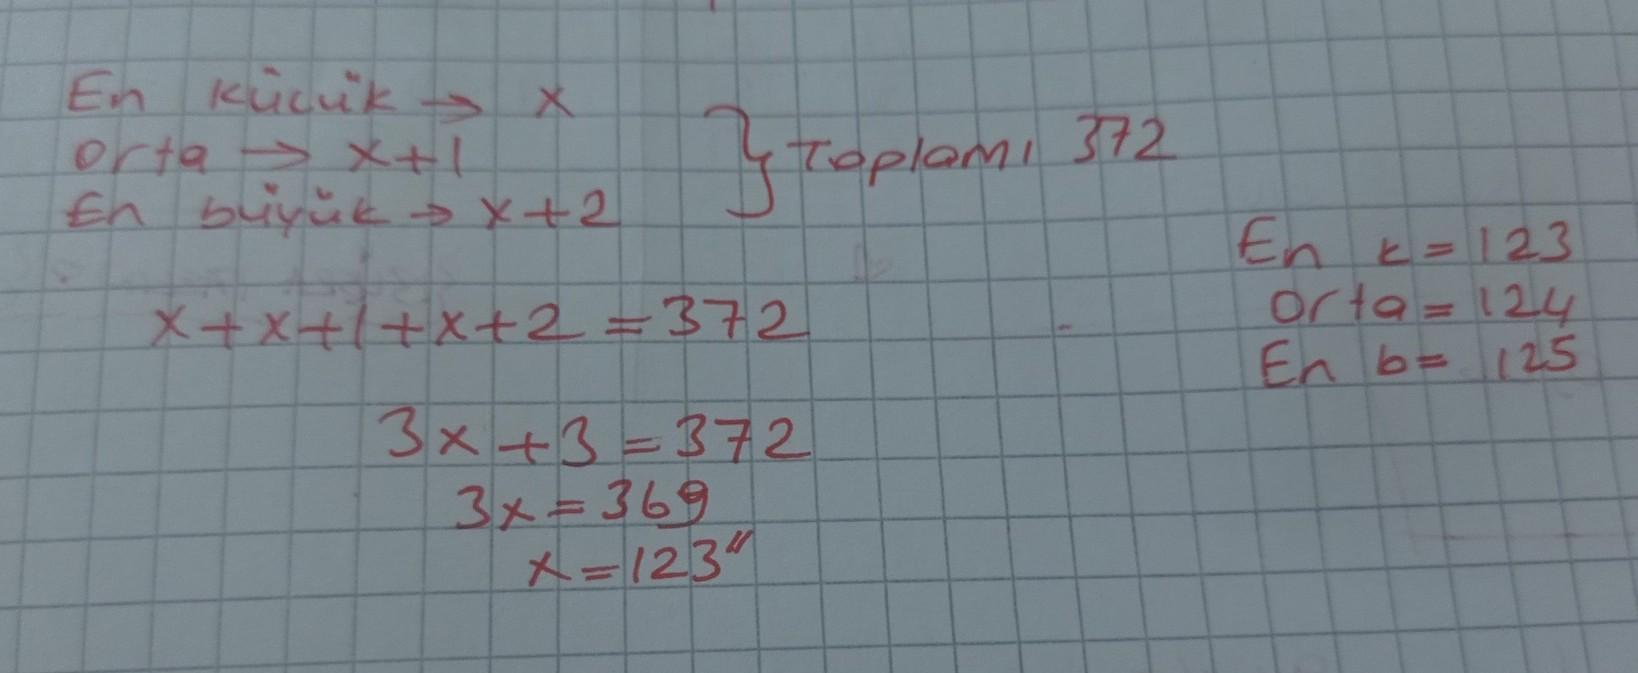 En küçük → x
Orta → x+1
En büyük → x+2
} Toplamı 372
x+x+1+x+2=372
3x+3=372
3x=369
x=123"
En k=123
Orta=124
En b=125